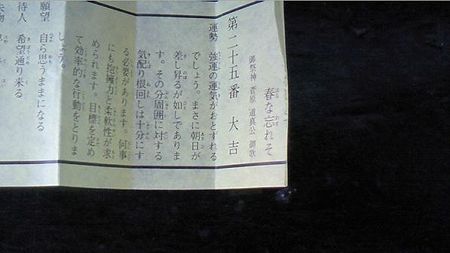 春な忘れそ
御祭神 菅原道真公 御歌
第二十五番 大吉
運勢 強運の運気がおとずれる
でしょう。まさに朝日が
差し昇るが如しでありま
す。その分周囲に対する
気配り根回しは十分にす
る必要があります。何事
にも抱擁力と柔軟性が求
められます。目標を定め
て効率的な行動をとりま
しょう。
願望 自ら思うままになる
待人 希望通り来る
失物